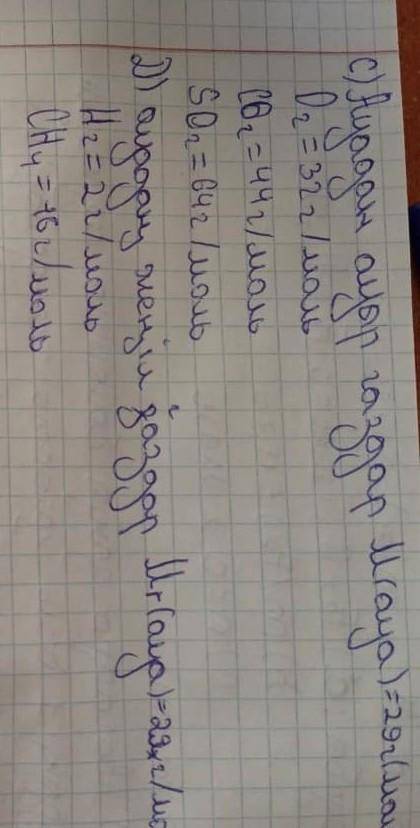 C) Ауадан ауыр газдар M(ауа)=29г/мол
O₂=32г/моль
CO₂=44г/моль
SO₂=64г/моль
D) ауадан жеңіл газдар Mr(ауа)=29г/мо
H₂=2г/моль
CH₄=16г/моль